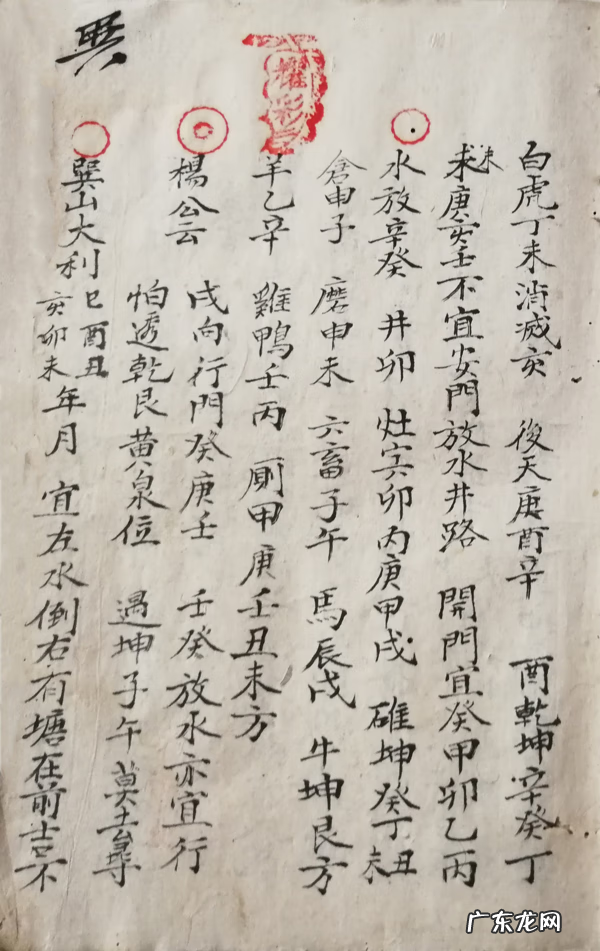 白虎丁未消滅亥 後天庚酉辛 酉乾坤辛癸丁
未
求庚亥壬不宜安門放水井路 開門宜癸甲卯乙丙
水放辛癸 井卯 灶寅卯丙庚甲戌 碓坤癸丁丑未
倉申子 磨申未 六畜子午 馬辰戌 牛坤艮方
羊乙辛 雞鴨壬丙 厠甲庚壬丑未方
楊公云 戌向行門癸庚壬 壬癸放水亦宜行
怕透乾艮黄泉位 過坤子午莫去尋
巽山大利 巳酉丑 亥卯未 年月 宜左水倒右有塘在前吉不
巽
廣东龙网